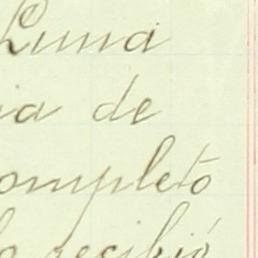 Luna
ia de
completo
lo recibió